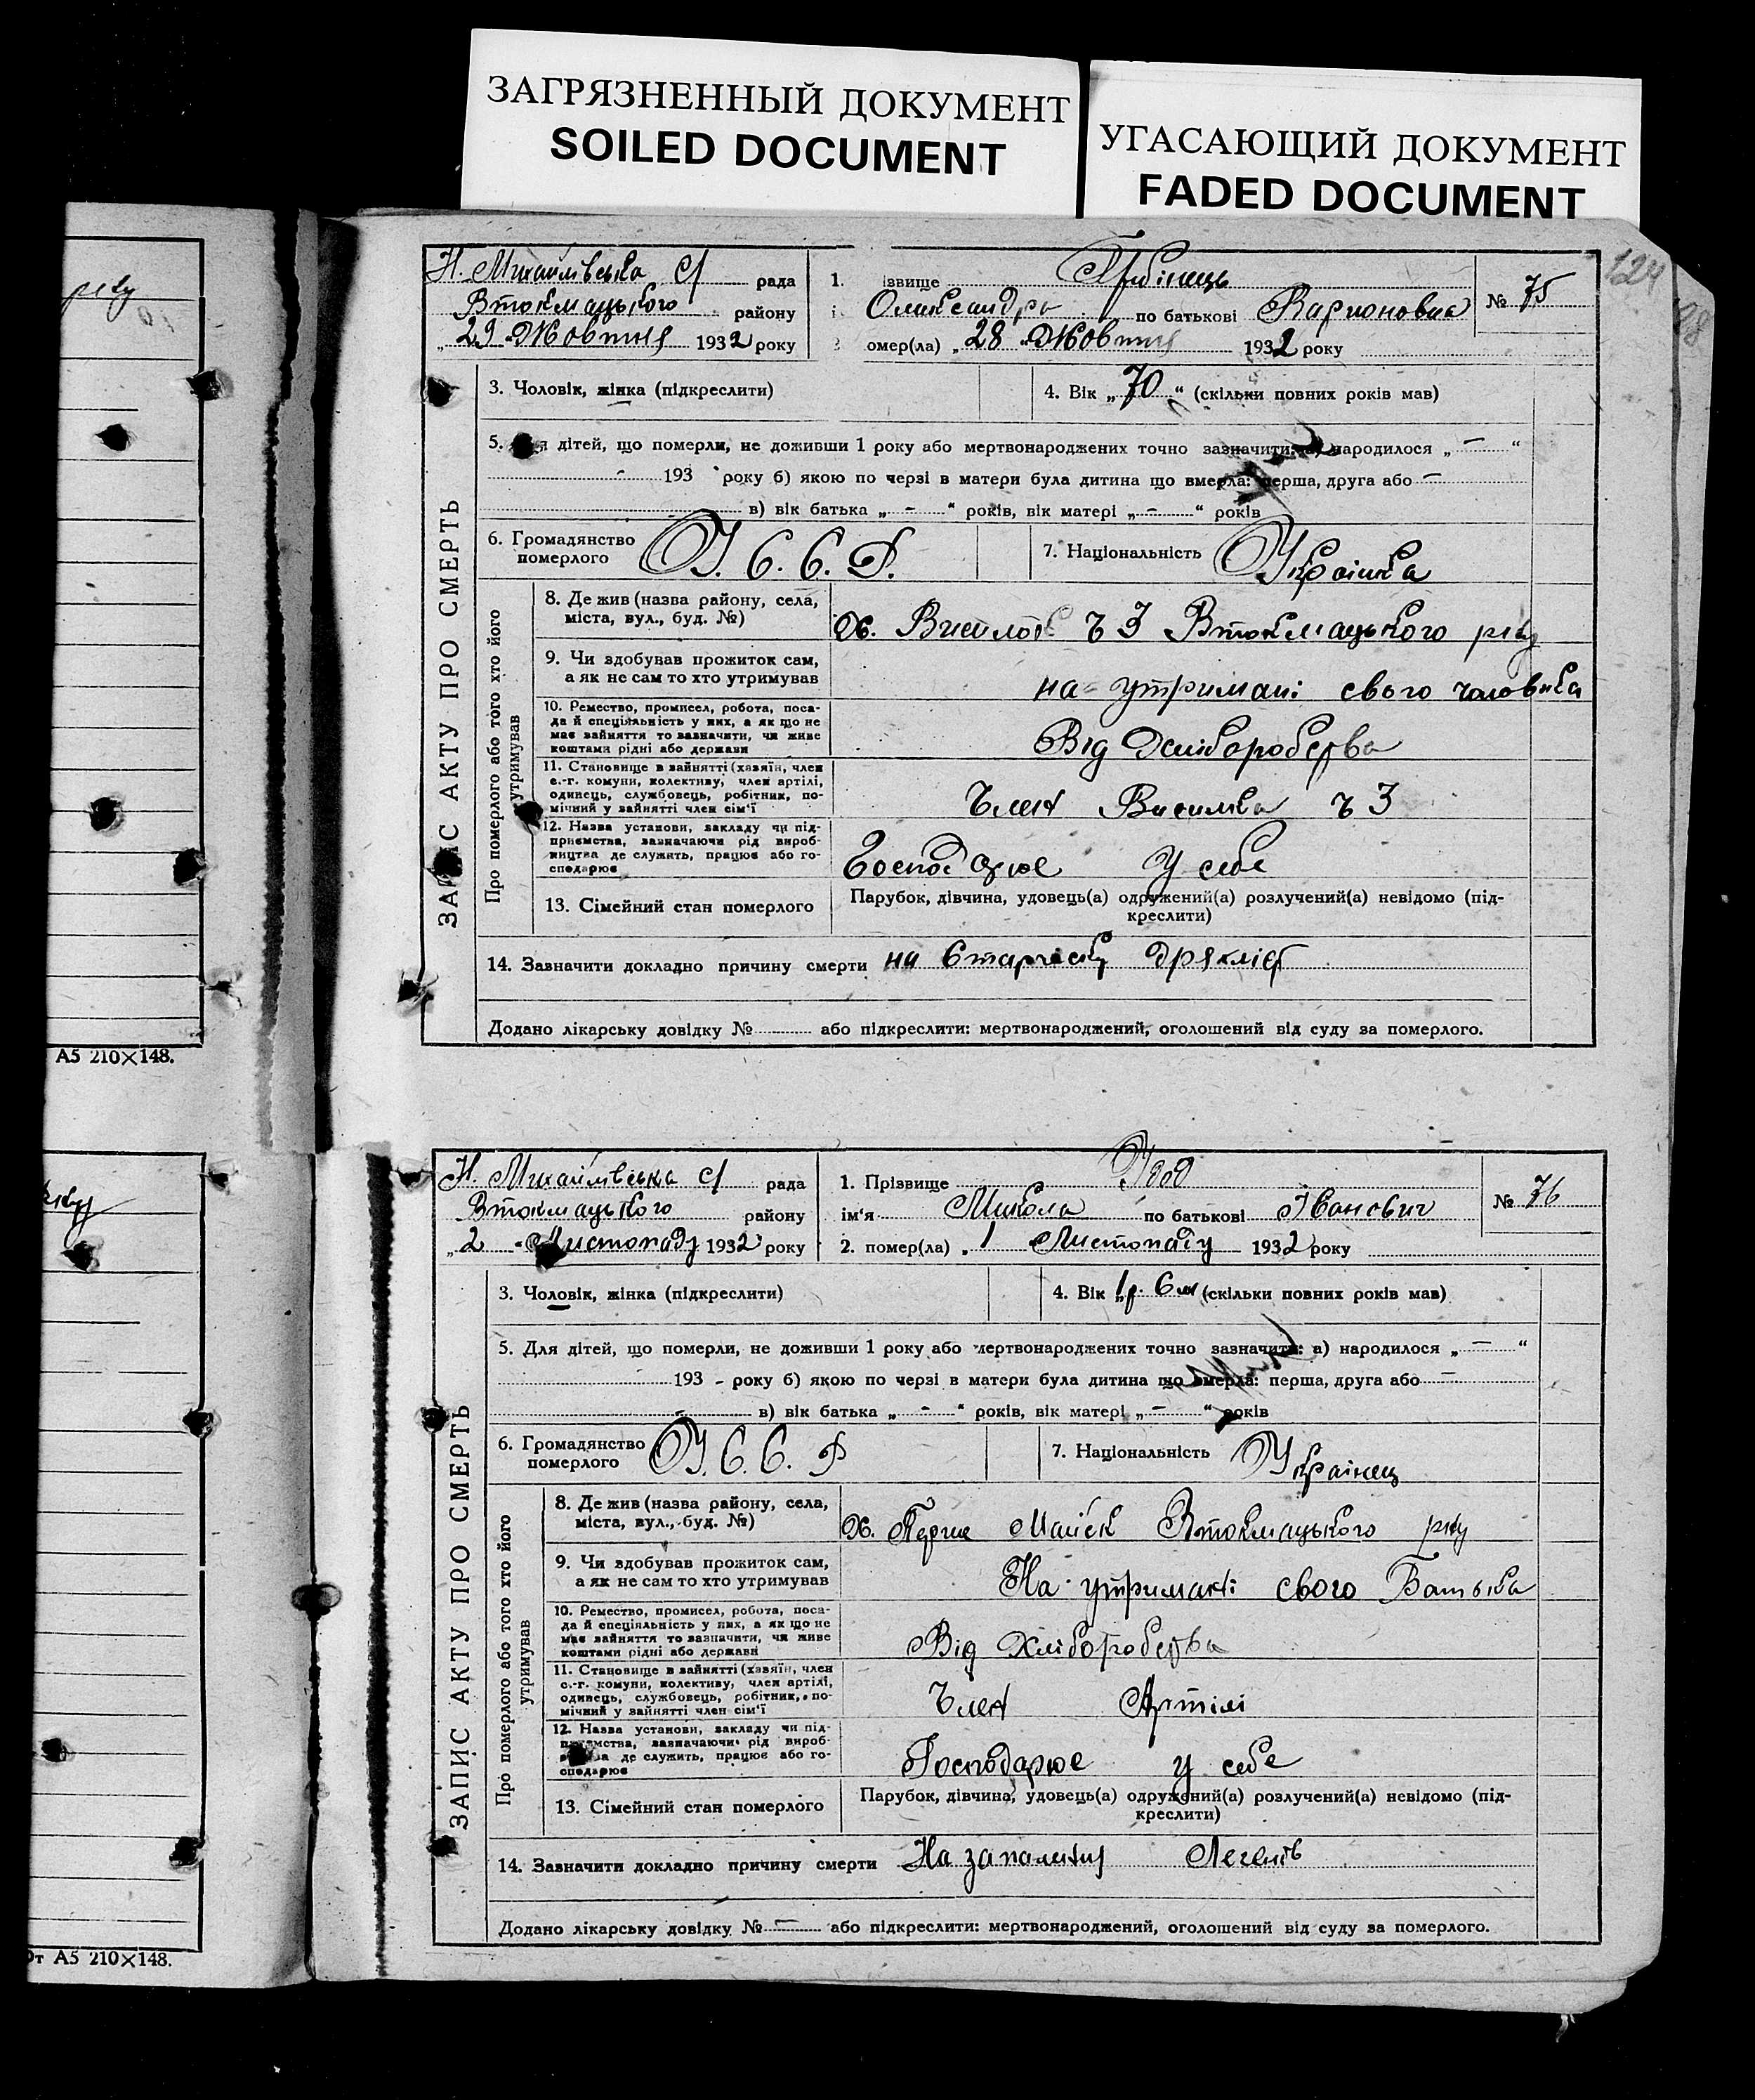 ЗАГРЯЗНЕННЫЙ ДОКУМЕНТ
SOILED DOCUMENT
УГАСАЮЩИЙ ДОКУМЕНТ
FADED DOCUMENT
124
Н. Михайлівська с/ рада
Втокмацького району
„29 Жовтня 1932 року
1. ізвище Грибінець
Олександра по батькові Ларионовна
№ 75
омер(ла) „28 Жовтня 1932 року
3. Чоловік, жінка (підкреслити)
4. Вік „70“ (скільки повних років мав)
5. я дітей, що померли, не доживши 1 року або мертвонароджених точно зазначити: а) народилося „—“
193 року б) якою по черзі в матери була дитина що вмерла: перша, друга або —
в) вік батька „-“ років, вік матері „-“ років
6. Громадянство померлого У. С. С. Р.
7. Національність Українка
8. Де жив (назва району, села,
міста, вул., буд. №)
Х. Виселок ч 3 Втокмацького р-ну
9. Чи здобував прожиток сам,
а як не сам то хто утримував
на утримані свого чоловіка
10. Ремество, промисел, робота, поса-
да й спеціяльність у них, а як що не
має зайняття то зазначити, чи живе
коштами рідні або держави
Від Хліборобства
11. Становище в зайнятті (хазяїн, член
с.-г. комуни, колективу, член артілі,
одинець, службовець, робітник, по-
мічний у зайнятті член сім'ї
Член Виселка ч 3
12. Назва установи, закладу чи під-
приємства, зазначаючи рід вироб-
ництва де служить, працює або го-
сподарює
Господарює у себе
13. Сімейний стан померлого
Парубок, дівчина, удовець(а) одружений(а) розлучений(а) невідомо (під-
креслити)
14. Зазначити докладно причину смерти на Старческу дряхліст
Додано лікарську довідку № або підкреслити: мертвонароджений, оголошений від суду за померлого.
ЗАПИС АКТУ ПРО СМЕРТЬ
Про померлого або того хто його
утримував
А5 210×148.
Н. Михайлівська с/ рада
Втокмацького району
„2 Листопаду 1932 року
1. Прізвище Удод
ім'я Микола по батькові Іванович
№ 76
2. помер(ла) „1 Листопаду 1932 року
3. Чоловік, жінка (підкреслити)
4. Вік „1 р. 6 м (скільки повних років мав)
5. Для дітей, що померли, не доживши 1 року або мертвонароджених точно зазначити: а) народилося „—“
193 - року б) якою по черзі в матери була дитина що вмерла: перша, друга або —
в) вік батька „-“ років, вік матері „-“ років
6. Громадянство померлого У. С. С. Р
7. Національність Українец
8. Де жив (назва району, села,
міста, вул., буд. №)
Х. Перше Майск Втокмацького р-ну
9. Чи здобував прожиток сам,
а як не сам то хто утримував
На утримані свого Батька
10. Ремество, промисел, робота, поса-
да й спеціяльність у них, а як що не
має зайняття то зазначити, чи живе
коштами рідні або держави
Від Хліборобства
11. Становище в зайнятті (хазяїн, член
с.-г. комуни, колективу, член артілі,
одинець, службовець, робітник, по-
мічний у зайнятті член сім'ї
Член Артілі
12. Назва установи, закладу чи під-
приємства, зазначаючи рід вироб-
ництва де служить, працює або го-
сподарює
Господарює у себе
13. Сімейний стан померлого
Парубок, дівчина, удовець(а) одружений(а) розлучений(а) невідомо (під-
креслити)
14. Зазначити докладно причину смерти На запаленя Легенів
Додано лікарську довідку № — або підкреслити: мертвонароджений, оголошений від суду за померлого.
ЗАПИС АКТУ ПРО СМЕРТЬ
Про померлого або того хто його
утримував
А5 210×148.